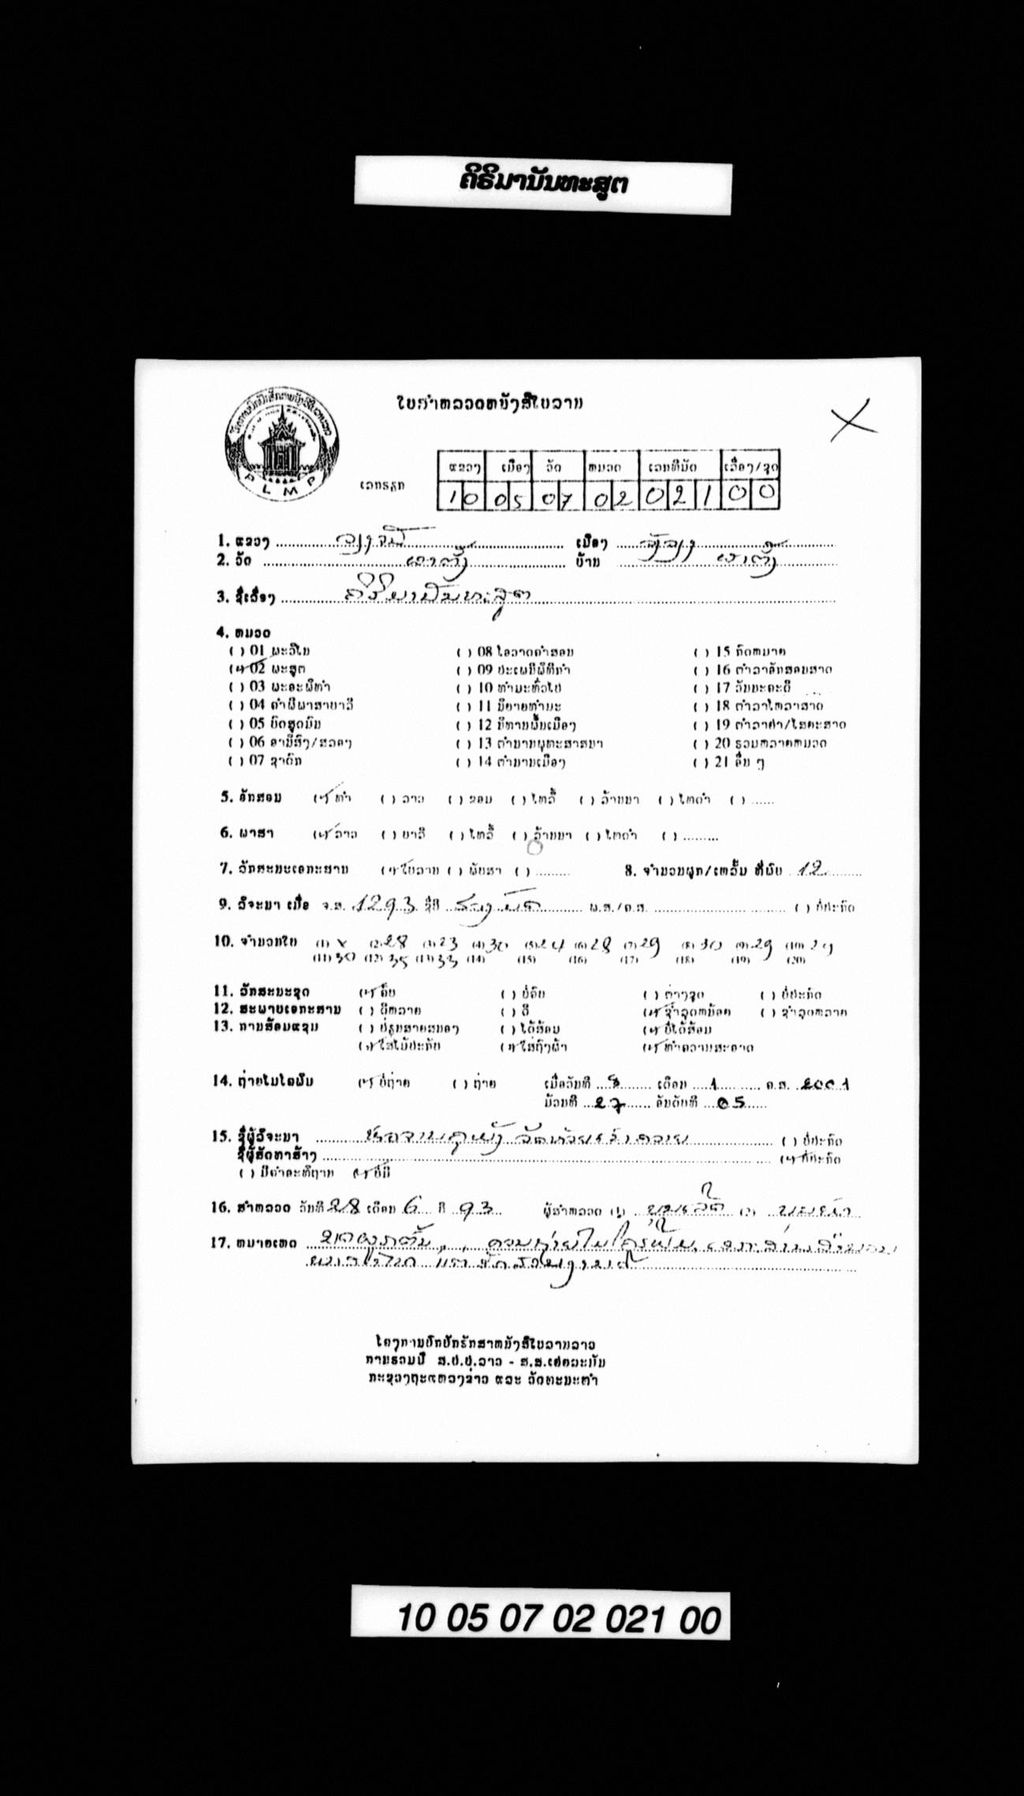 ຄິຣິມານັນທະສູຕ
ໃບສຳຫລວດຫນັງສືໃບລານ
PLMP
ແຂວງ ເມືອງ ວັດ ຫມວດ ເລກທີມັດ ເລື່ອງ/ຊຸດ
ເລກຣຫັກ 10 05 07 02 021 00
1. ແຂວງ ວຽງຈັນ ເມືອງ ວັງວຽງ
2. ວັດ ບ້ານ
3. ຊື່ເລື່ອງ ຄິຣິມານັນທະສູຕ
4. ຫມວດ
( ) 01 ພະວິໄນ ( ) 08 ໂອວາດຄຳສອນ ( ) 15 ກົດຫມາຍ
(✓) 02 ພະສູດ ( ) 09 ປະເພນີພິທີກຳ ( ) 16 ຕຳລາອັກສອນສາດ
( ) 03 ພະອະພິທຳ ( ) 10 ທຳມະທົ່ວໄປ ( ) 17 ວັນນະຄະດີ
( ) 04 ຄຳພີພາສາບາລີ ( ) 11 ນິຍາຍທຳມະ ( ) 18 ຕຳລາໂຫລາສາດ
( ) 05 ບົດສູດມົນ ( ) 12 ນິທານພື້ນເມືອງ ( ) 19 ຕຳລາຢາ/ໄສຍະສາດ
( ) 06 ອານິສົງ/ສລອງ ( ) 13 ຕຳນານພຸທະສາສນາ ( ) 20 ຮວມຫລາຍຫມວດ
( ) 07 ຊາດົກ ( ) 14 ຕຳນານເມືອງ ( ) 21 ອື່ນ ໆ
5. ອັກສອນ (✓) ທຳ ( ) ລາວ ( ) ຂອມ ( ) ໄທລື້ ( ) ລ້ານນາ ( ) ໄທດຳ ( )
6. ພາສາ (✓) ລາວ ( ) ບາລີ ( ) ໄທລື້ ( ) ລ້ານນາ ( ) ໄທດຳ ( )
7. ລັກສະນະເອກະສານ (✓) ໃບລານ ( ) ພັບສາ ( ) 8. ຈຳນວນຜູກ/ເຫລັ້ມ ທີ່ພົບ 12
9. ລິຈະນາ ເມື່ອ ຈ.ສ. 1293 ຊື່ປີ ພ.ສ./ຄ.ສ. ( ) ບໍ່ປະກົດ
10. ຈຳນວນໃບ (1) x (2) 28 (3) 23 (4) 30 (5) 24 (6) 28 (7) 29 (8) 30 (9) 29 (10) 29
(11) 30 (12) 35 (13) 33 (14) (15) (16) (17) (18) (19) (20)
11. ລັກສະນະຊຸດ (✓) ຄົບ ( ) ບໍ່ຄົບ ( ) ຕ່າງຊຸດ ( ) ບໍ່ປະກົດ
12. ສະພາບເອກະສານ ( ) ດີຫລາຍ ( ) ດີ (✓) ຊຳລຸດຫນ້ອຍ ( ) ຊຳລຸດຫລາຍ
13. ການສ້ອມແຊມ ( ) ປ່ຽນສາຍສນອງ ( ) ໄດ້ສ້ອມ (✓) ບໍ່ໄດ້ສ້ອມ
(✓) ໃສ່ໄມ້ປະກັບ (✓) ໃສ່ຖົງຜ້າ (✓) ທຳຄວາມສະອາດ
14. ຖ່າຍໄມໂຄຟິມ (✓) ບໍ່ຖ່າຍ ( ) ຖ່າຍ ເມື່ອວັນທີ 8 ເດືອນ 1 ຄ.ສ. 2001
ມ້ວນທີ 27 ອັນດັບທີ 05
15. ຊື່ຜູ້ລິຈະນາ ( ) ບໍ່ປະກົດ
ຊື່ຜູ້ສັດທາສ້າງ (✓) ບໍ່ປະກົດ
( ) ມີຄຳອະທິຖານ (✓) ບໍ່ມີ
16. ສຳຫລວດ ວັນທີ 28 ເດືອນ 6 ປີ 93 ຜູ້ສຳຫລວດ (1) (2)
17. ຫມາຍເຫດ ຂາດຜູກຕົ້ນ
ໂຄງການປົກປັກຮັກສາຫນັງສືໃບລານລາວ
ການຮວມມື ສ.ປ.ປ.ລາວ - ສ.ສ.ເຢຍລະມັນ
ກະຊວງຖະແຫລງຂ່າວ ແລະ ວັດທະນະທຳ
10 05 07 02 021 00